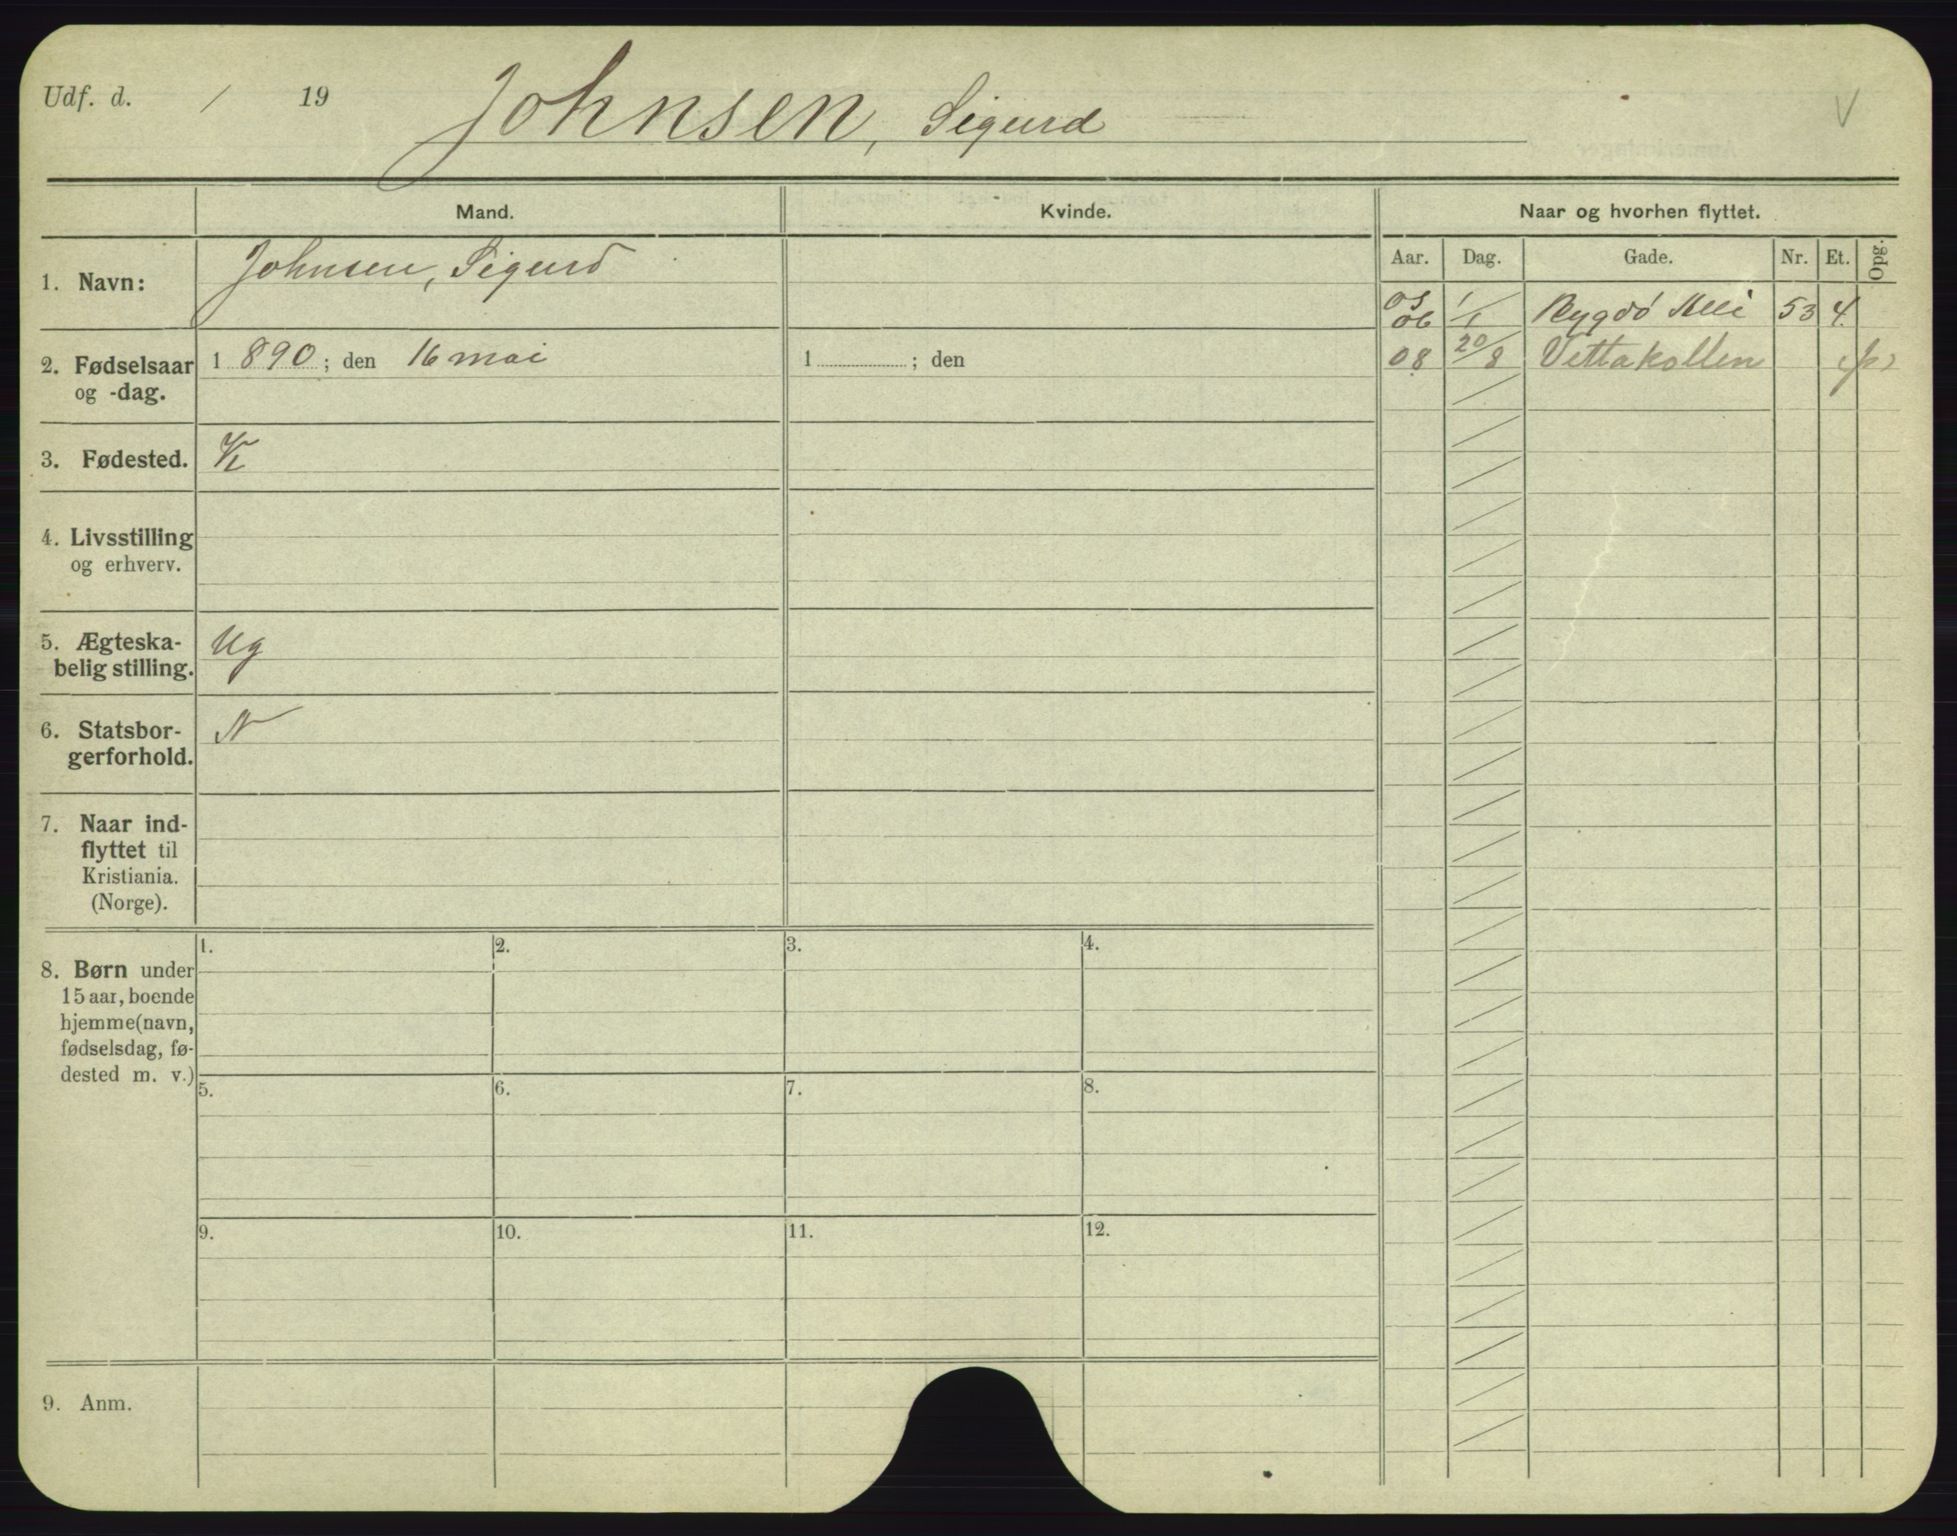 Udf. d. / 19 Johnsen, Sigurd V
Mand. Kvinde. Naar og hvorhen flyttet.
Aar. Dag. Gade. Nr. Et. Opg.
1. Navn: Johnsen, Sigurd
05
06 1/1 Bygdö Alle 53 4.
08 20/8 Vettakollen
2. Fødselsaar 1 890; den 16 mai 1 ; den
og -dag.
3. Fødested. K
4. Livsstilling
og erhverv.
5. Ægteska- Ug
belig stilling.
6. Statsbor- N
gerforhold.
7. Naar ind-
flyttet til
Kristiania.
(Norge).
1. 2. 3. 4.
8. Børn under
15 aar, boende
hjemme (navn,
fødselsdag, fø-
dested m. v.)
5. 6. 7. 8.
9. 10. 11. 12.
9. Anm.